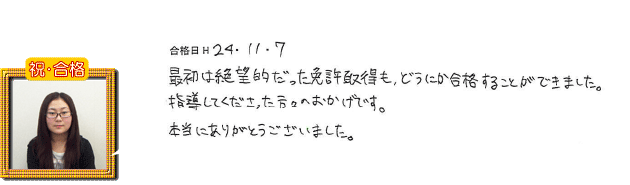 祝・合格
合格日 H 24.11.7
最初は絶望的だった免許取得も,どうにか合格することができました。
指導してくださった方々のおかげです。
本当にありがとうございました。